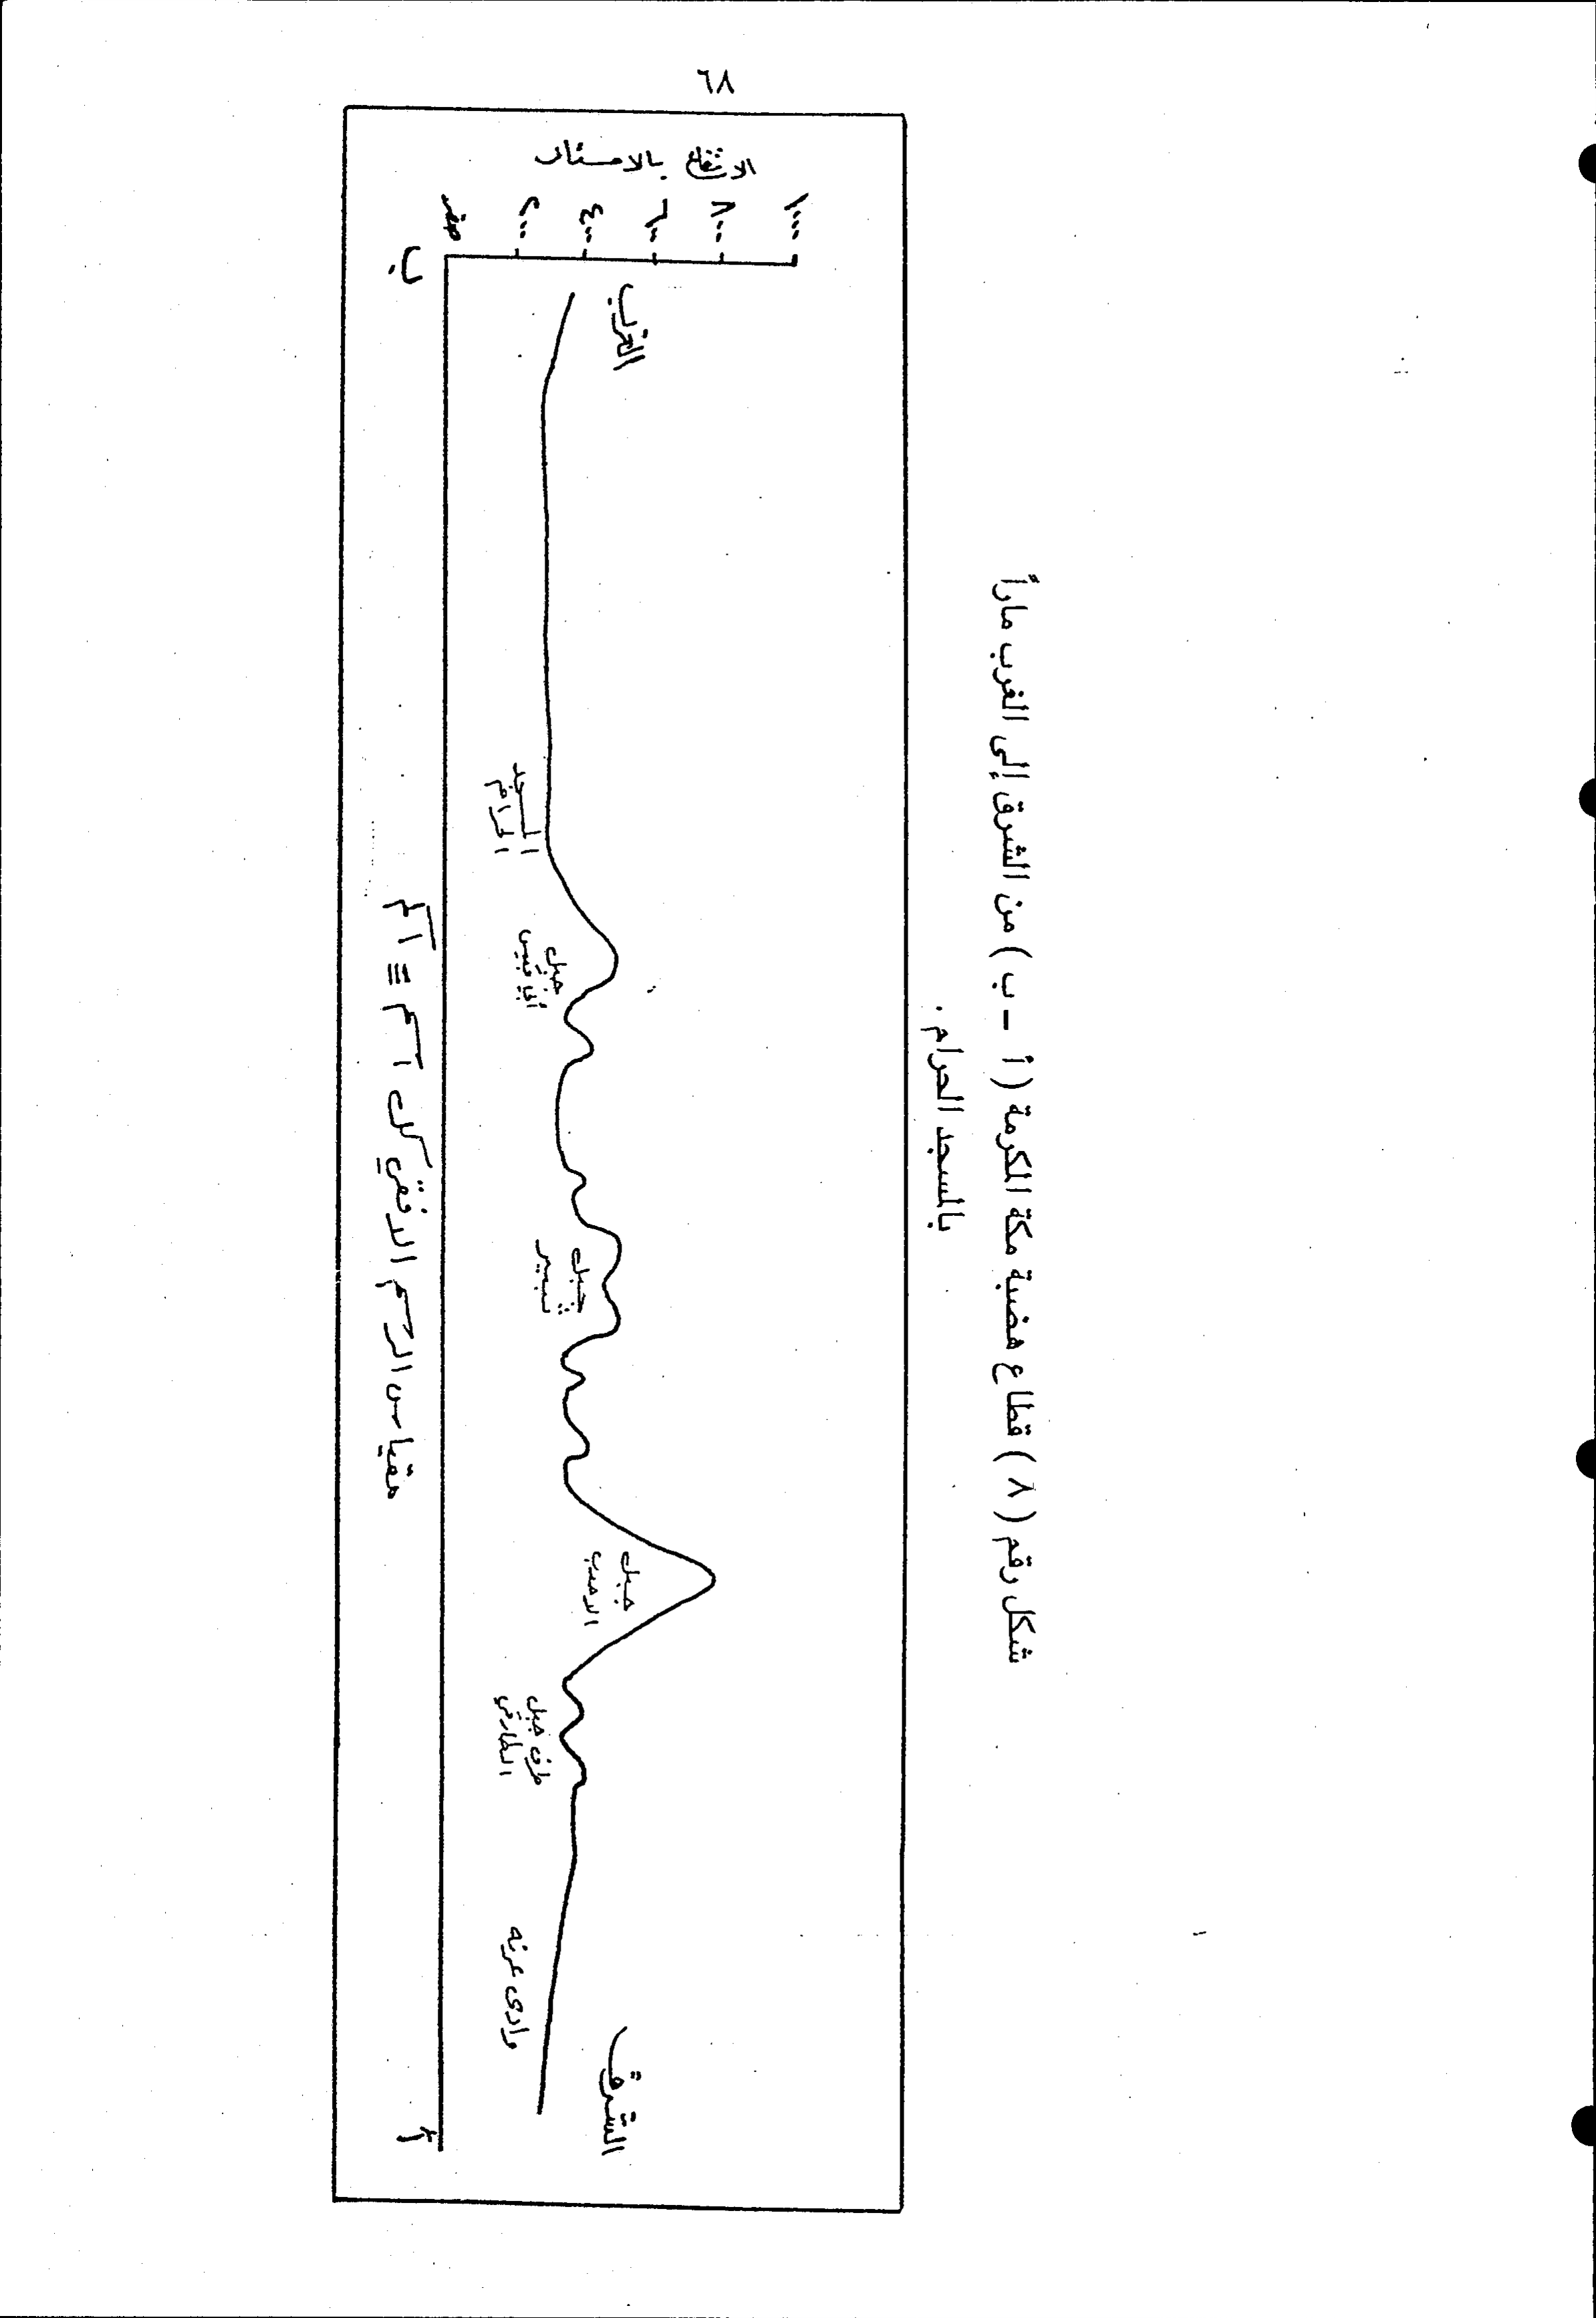 ٦٨
شكل رقم ( ٨ ) قطاع هضبة مكة المكرمة ( أ - ب ) من الشرق إلى الغرب ماراً
بالمسجد الحرام .
الارتفاع بالامتار
١٠٠٠
٨٠٠
٦٠٠
٤٠٠
٢٠٠
صفر
الغرب
الشرق
المسجد
الحرام
جبل
أبي قبيس
جبل
ثبير
جبل
الاحدب
طرف جبل
الطارقي
وادى عرنه
ب
أ
مقياس الرسم الافقي كل ١سم ≡ ١كم